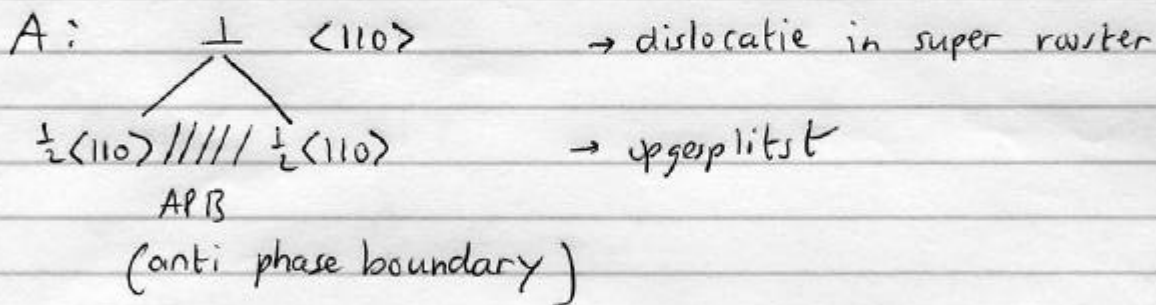 A: ⊥ <110> → dislocatie in super rooster
½<110> ///// ½<110> → opgesplitst
APB
(anti phase boundary)